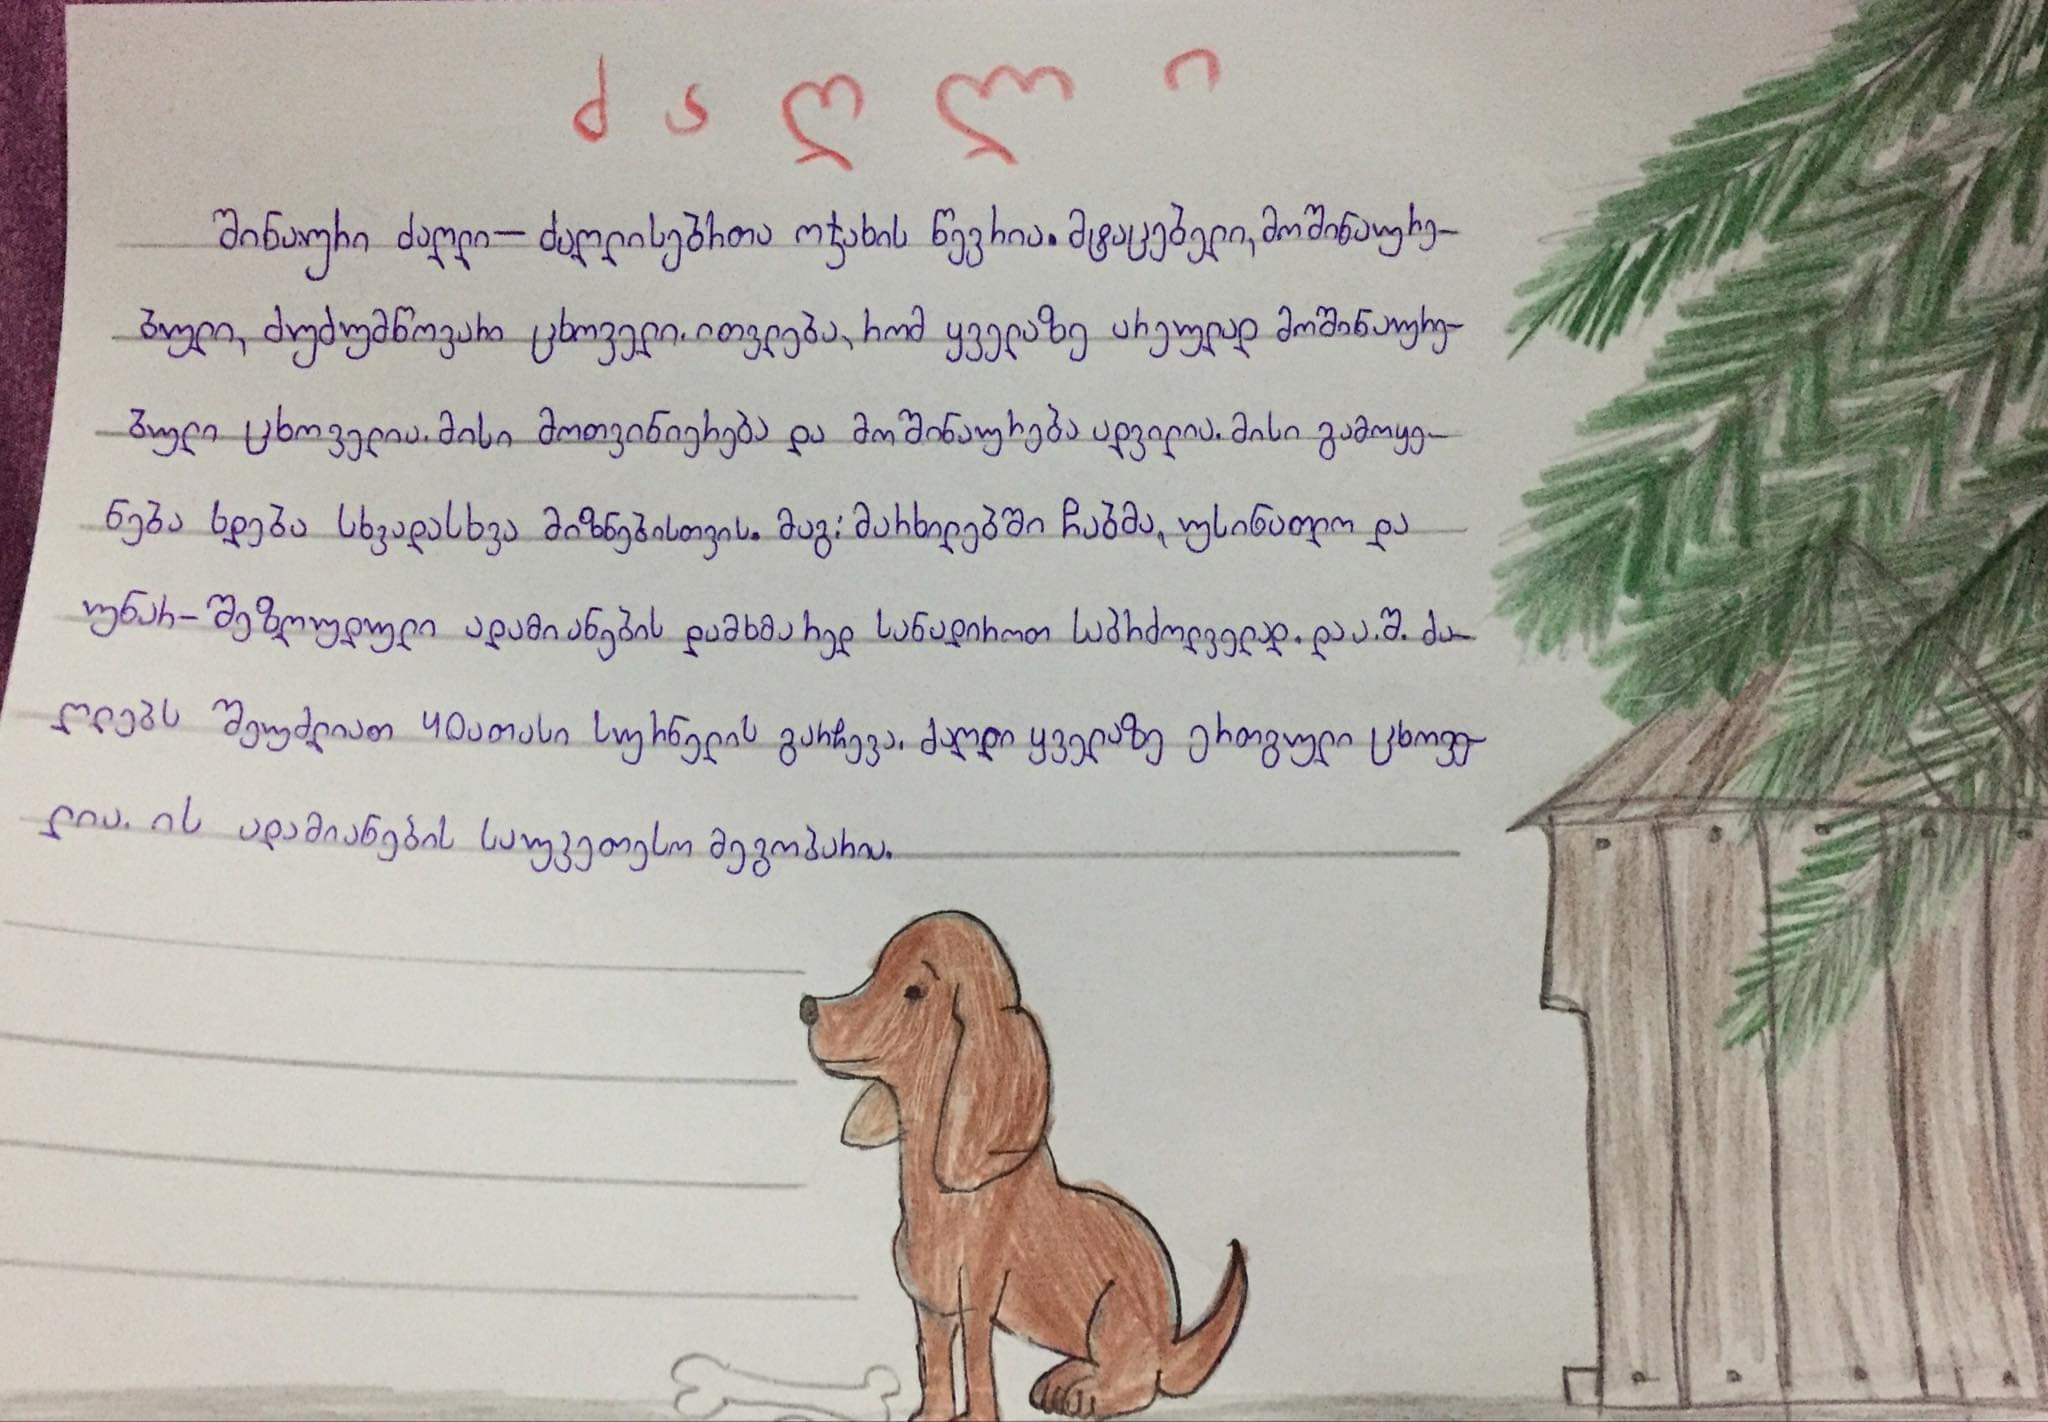 ძაღლი
შინაური ძაღლი – ძაღლისებრთა ოჯახის წევრია. მტაცებელი, მოშინაურე-
ბული, ძუძუმწოვარი ცხოველი. ითვლება, რომ ყველაზე არეულად მოშინაურე-
ბული ცხოველია. მისი მოთვინიერება და მოშინაურება ადვილია. მისი გამოყე-
ნება ხდება სხვადასხვა მიზნებისთვის. მაგ: მარხილებში ჩაბმა, უსინათლო და
უნარ-შეზღუდული ადამიანების დამხმარედ სანადიროთ საბრძოლველად. და ა.შ. ძა-
ღლებს შეუძლიათ 40ათასი სურნელის გარჩევა. ძაღლი ყველაზე ერთგული ცხოვე-
ლია. ის ადამიანების საუკეთესო მეგობარია.